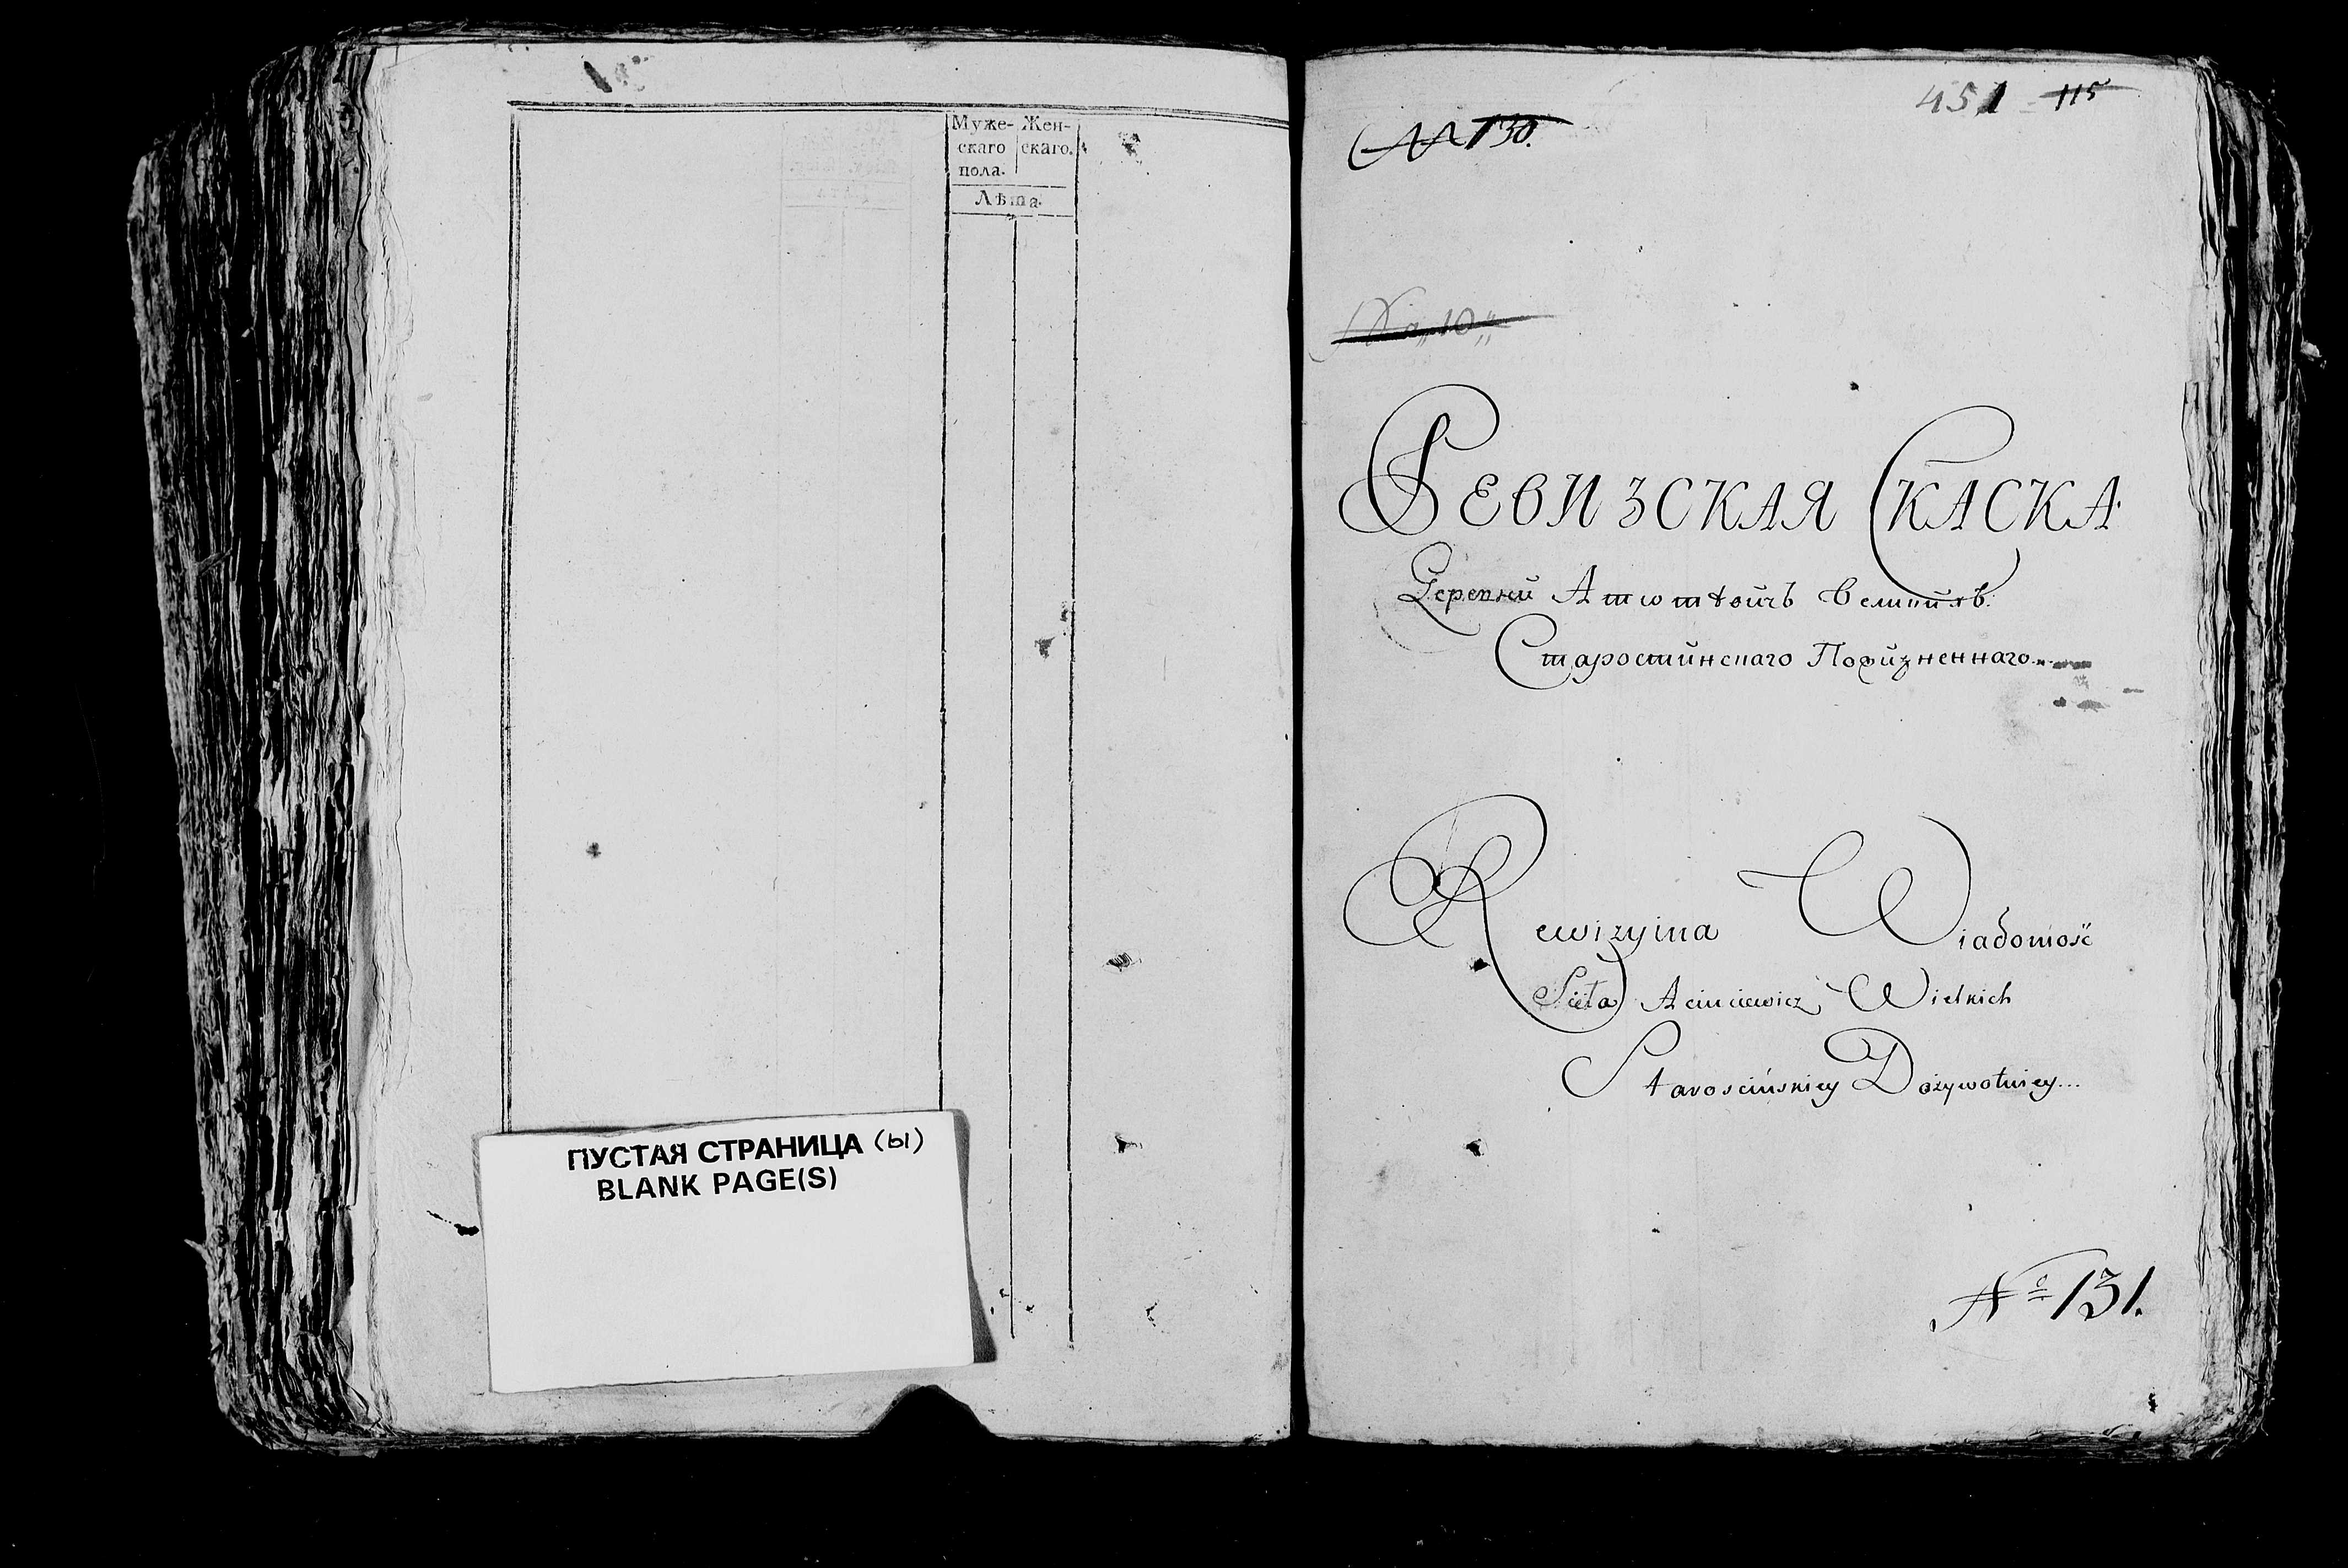 Муже- Жен-
скаго скаго.
пола.
Лѣта.
ПУСТАЯ СТРАНИЦА (ы)
BLANK PAGE(S)
451 115
№ 130.
10
РЕВИЗСКАЯ СКАСКА
Деревни Великихъ.
Старостинскаго Пожизненнаго...
Rewizyina Wiadomość
Sieła Wielkich
Starościńskiey Dożywotniey...
№ 131.